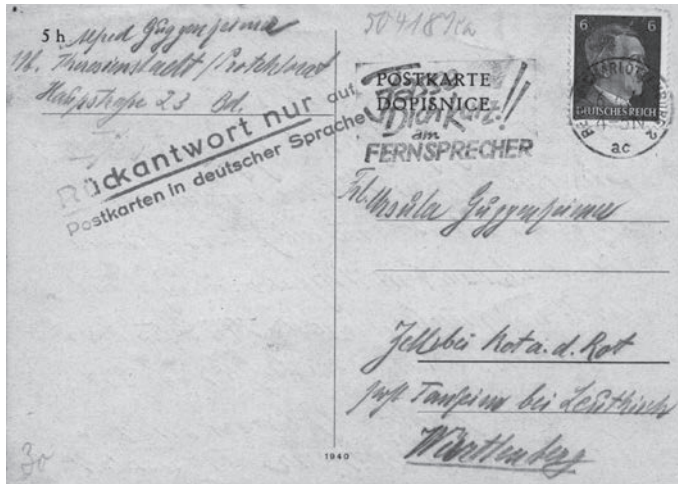 5 h
Alfred Guggenheimer
Theresienstadt / Protektorat
Hauptstraße 23
Rückantwort nur auf
Postkarten in deutscher Sprache
50418
POSTKARTE
DOPISNICE
Fasse
Dich kurz!!
am
FERNSPRECHER
6 6
DEUTSCHES REICH
ac
Frl. Ursula Guggenheimer
Zell bei Rot a. d. Rot
Post Tannheim bei Leutkirch
Württemberg
1940
30